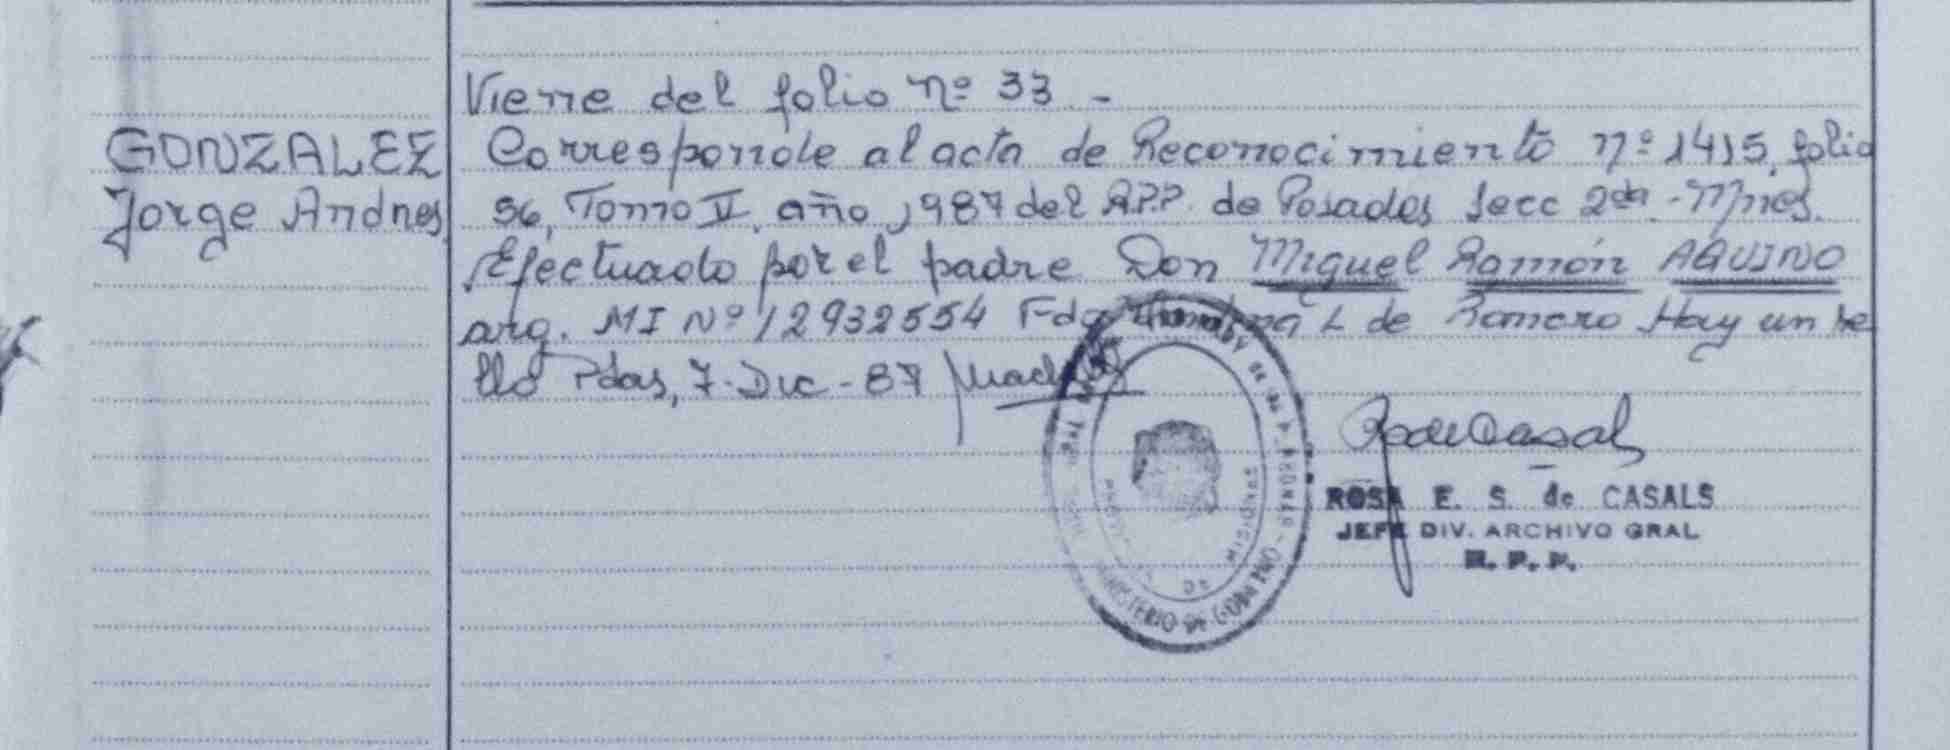 Viene del folio nº 33 -
GONZALEZ
Jorge Andres
Corresponde al acta de Reconocimiento nº 1415, folio
56, Tomo II, año 1987 del R.P.P. de Posadas Secc 2da - Mnes.
Efectuado por el padre Don Miguel Ramón AQUINO
arg. MI Nº 12932554 Fdo L de Romero Hay un se
llo Pdas, 7-Dic-87
MINISTERIO DE GOBIERNO
ROSA E. S. de CASALS
JEFE DIV. ARCHIVO GRAL
R. P. P.